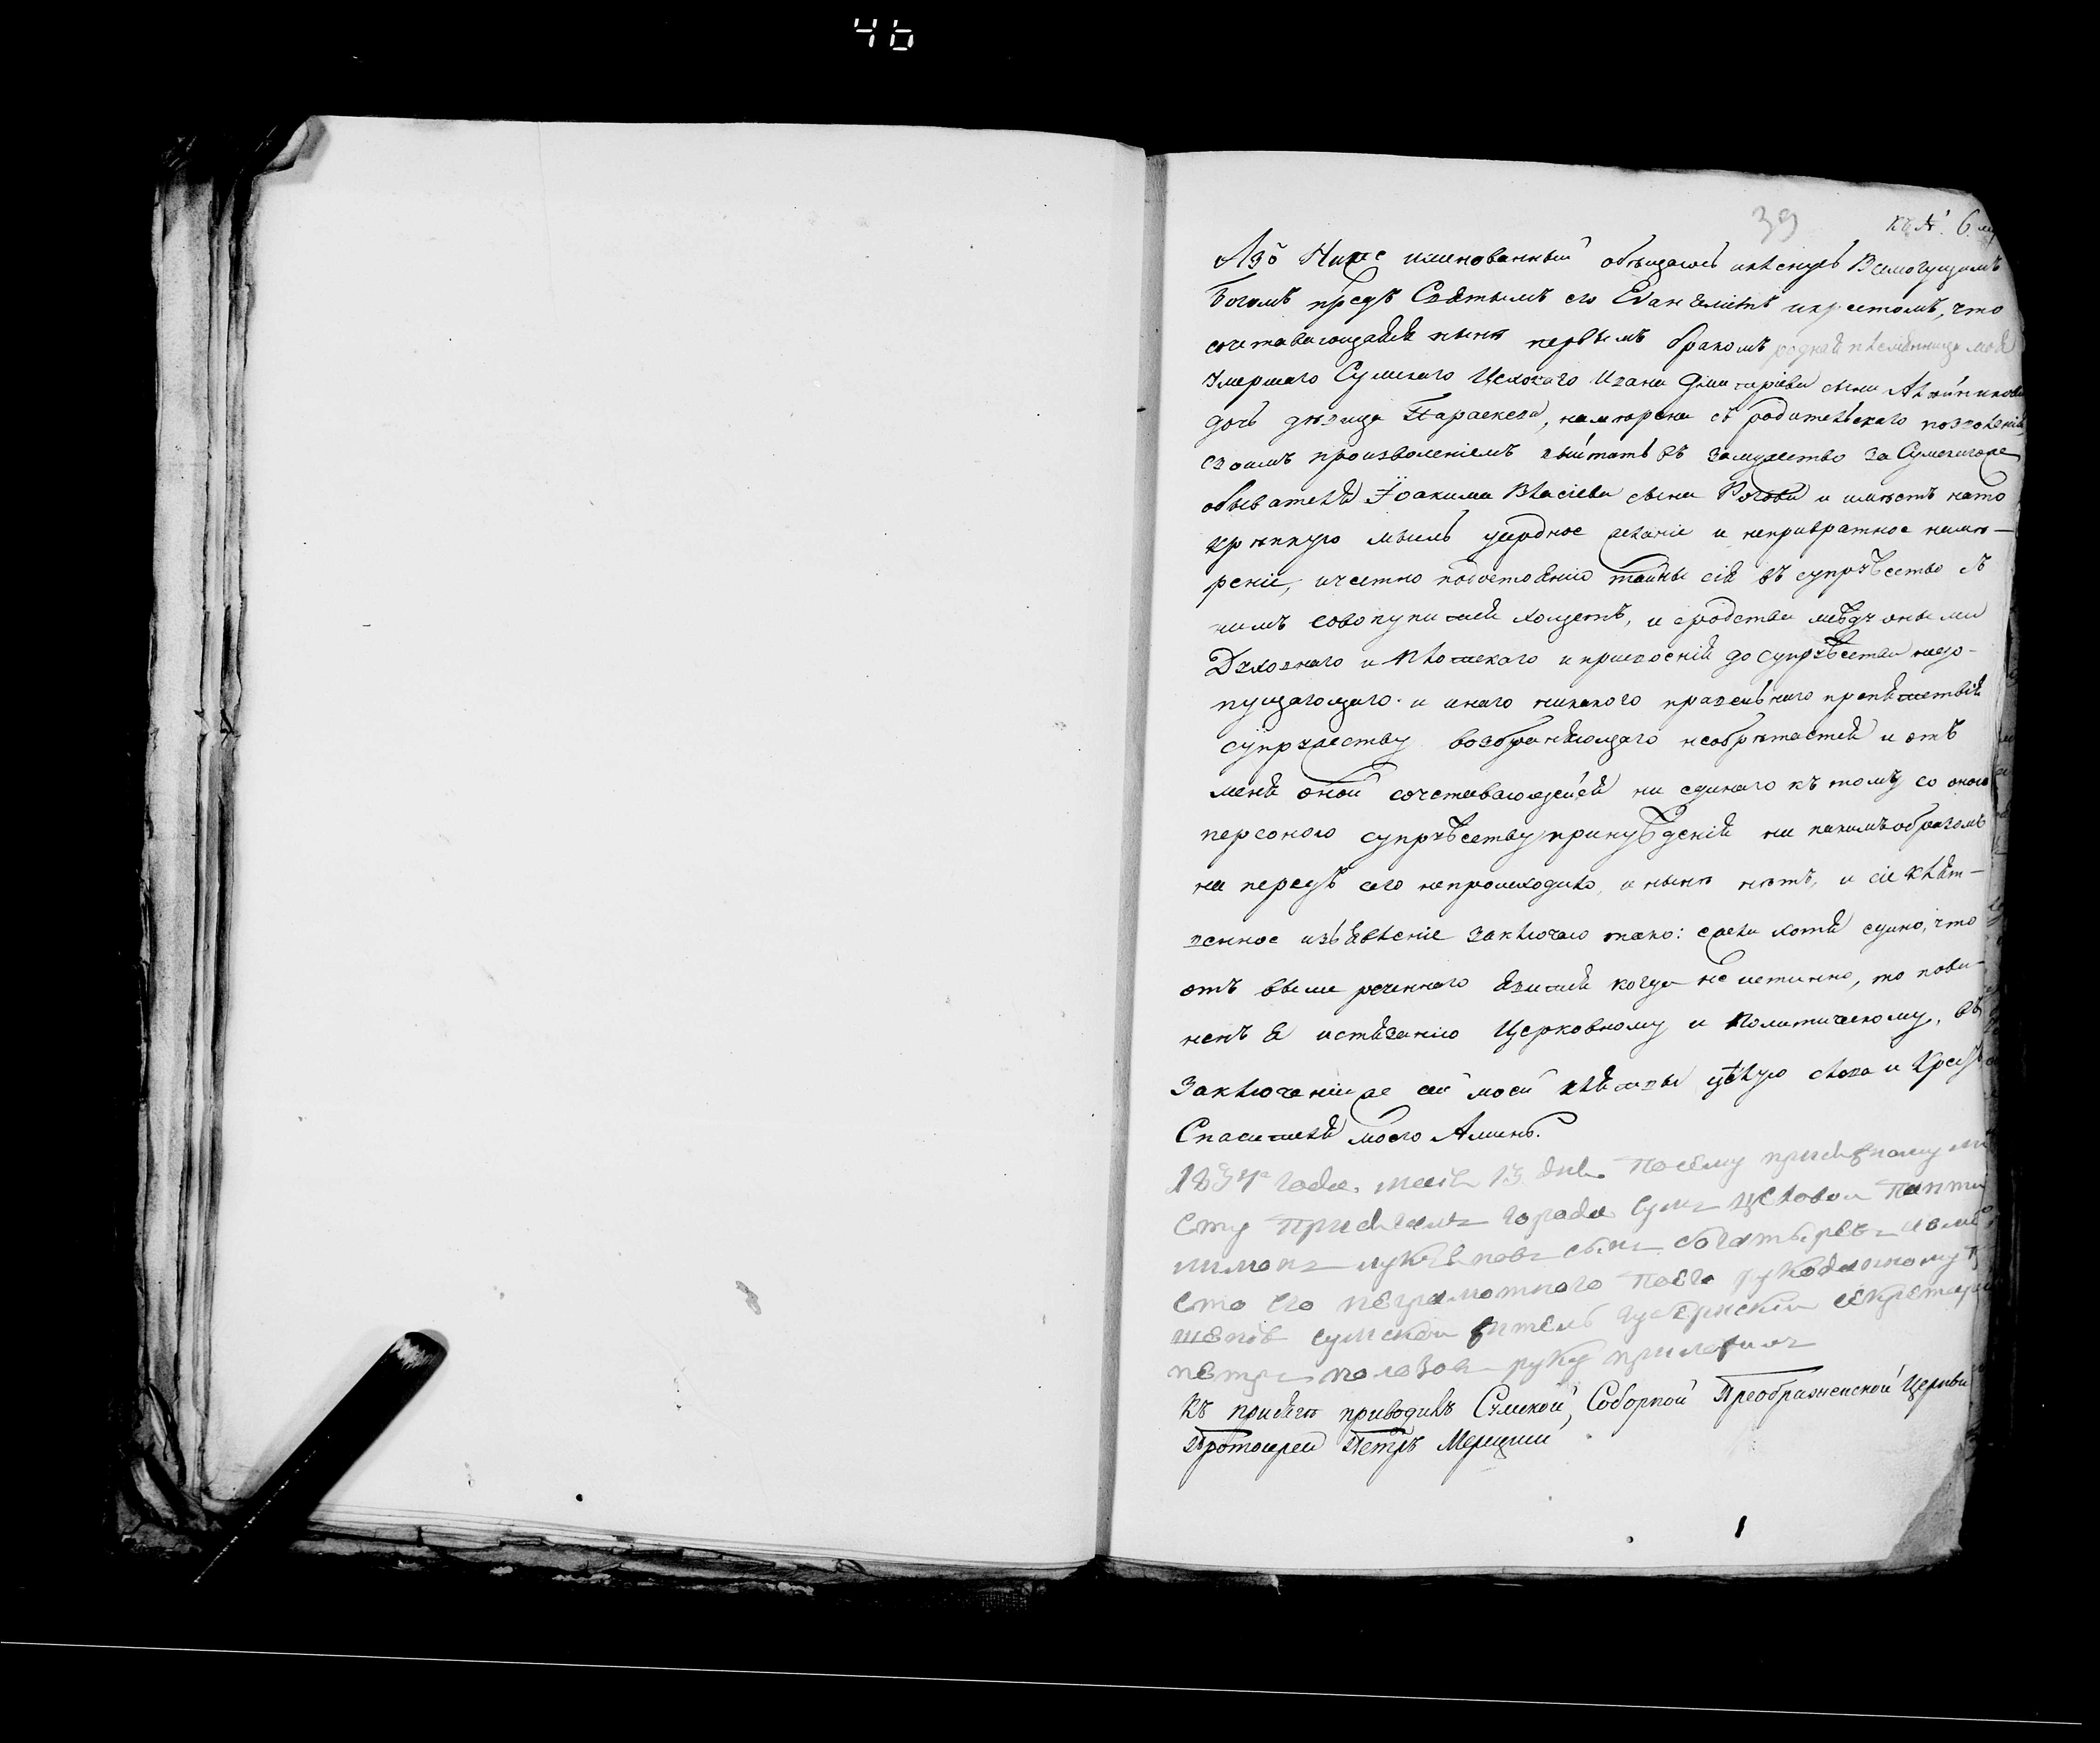 46
39
къ №. 6.му
Азъ Ниже именованный обѣщаюсь и кленусь Всемогущимъ
Богомъ предъ Святымъ его Евангелиемъ и крестомъ, что
сочетавающаяся нынѣ первымъ бракомъ родная племянница моя
умершаго Сумскаго Цеховаго Ивана Димитріева сына
дочь дѣвица Параскева, намѣрена съ родительскаго позволенія,
своимъ произволеніемъ вытить въ замужество за Сумскаго же
обывателя Іоакима Власіева сына Рогова и имѣетъ на то
крѣпкую мысль усердное желаніе и непривратное намѣ-
реніе, и честно по достоянію тайны сія въ супружество съ
нимъ совокупится хощетъ, и сродства между оными
Духовнаго и Плотскаго и присвоенія до супружества недо-
пущающаго и инаго никакого правельнаго препятствія
супружеству возбраняющаго необрѣтается и отъ
меня оной сочетавающейся ни единаго къ тому со оною
персоною супружеству принужденія ни какимъ образомъ
на передъ сего непроисходило, и нынѣ нѣтъ, и сіе клят-
венное изъявленіе заключаю тако: ежели хотя едино, что
отъ выше реченнаго явится когда не истинно, то пови-
ненъ я истязанію Церковному и Политическому, въ
Заключеніи же сей моей клятвы цѣлую слова и Крестъ
Спасителя моего Аминь.
1834го года. маія 13 дня посему присяжному ли
сту присягалъ города сумъ цеховои панти
лимонъ лукяновъ сынъ богатыревъ а вмѣ
сто его неграмотного поего рукоданному п
шенію сумскои житель губернскіи секретарь
петръ полозовъ руку приложилъ
Къ присягѣ приводилъ Сумской, Соборной Преображенской Церкви
Протоиерей Петръ